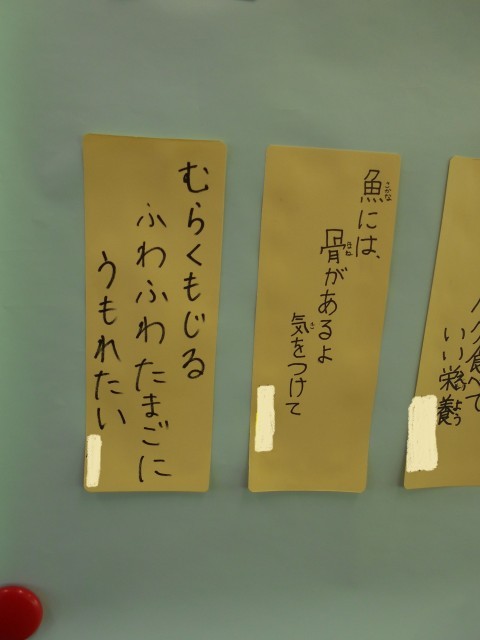 魚には、
骨があるよ
気をつけて
むらくもじる
ふわふわたまごに
うもれたい
食べて
いい栄養